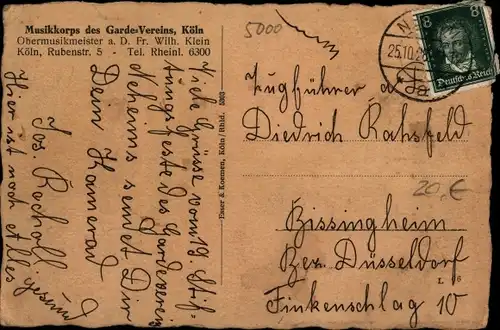 Musikkorps des Garde-Vereins, Köln
Obermusikmeister a. D. Fr. Wilh. Klein
Köln, Rubenstr. 5 - Tel. Rheinl. 6300
Viele Grüße vom 19 Stif-
tungsfeste des Gardeverein
Neheims sendet Dir
Dein Kamerad
Jos.
Hier ist noch alles gesund
Esser & Koemen, Köln/Rhld.
5000
25.10.2
8
8
Deutsches Reich
Zugführer a
D.
Diedrich Rahsfeld
20,€
Bissingheim
Bez. Düsseldorf
Finkenschlag 10